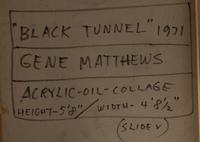 "BLACK TUNNEL" 1971
GENE MATTHEWS
ACRYLIC-OIL-COLLAGE
HEIGHT-5'8" / WIDTH-4'8½"
(SLIDE V)